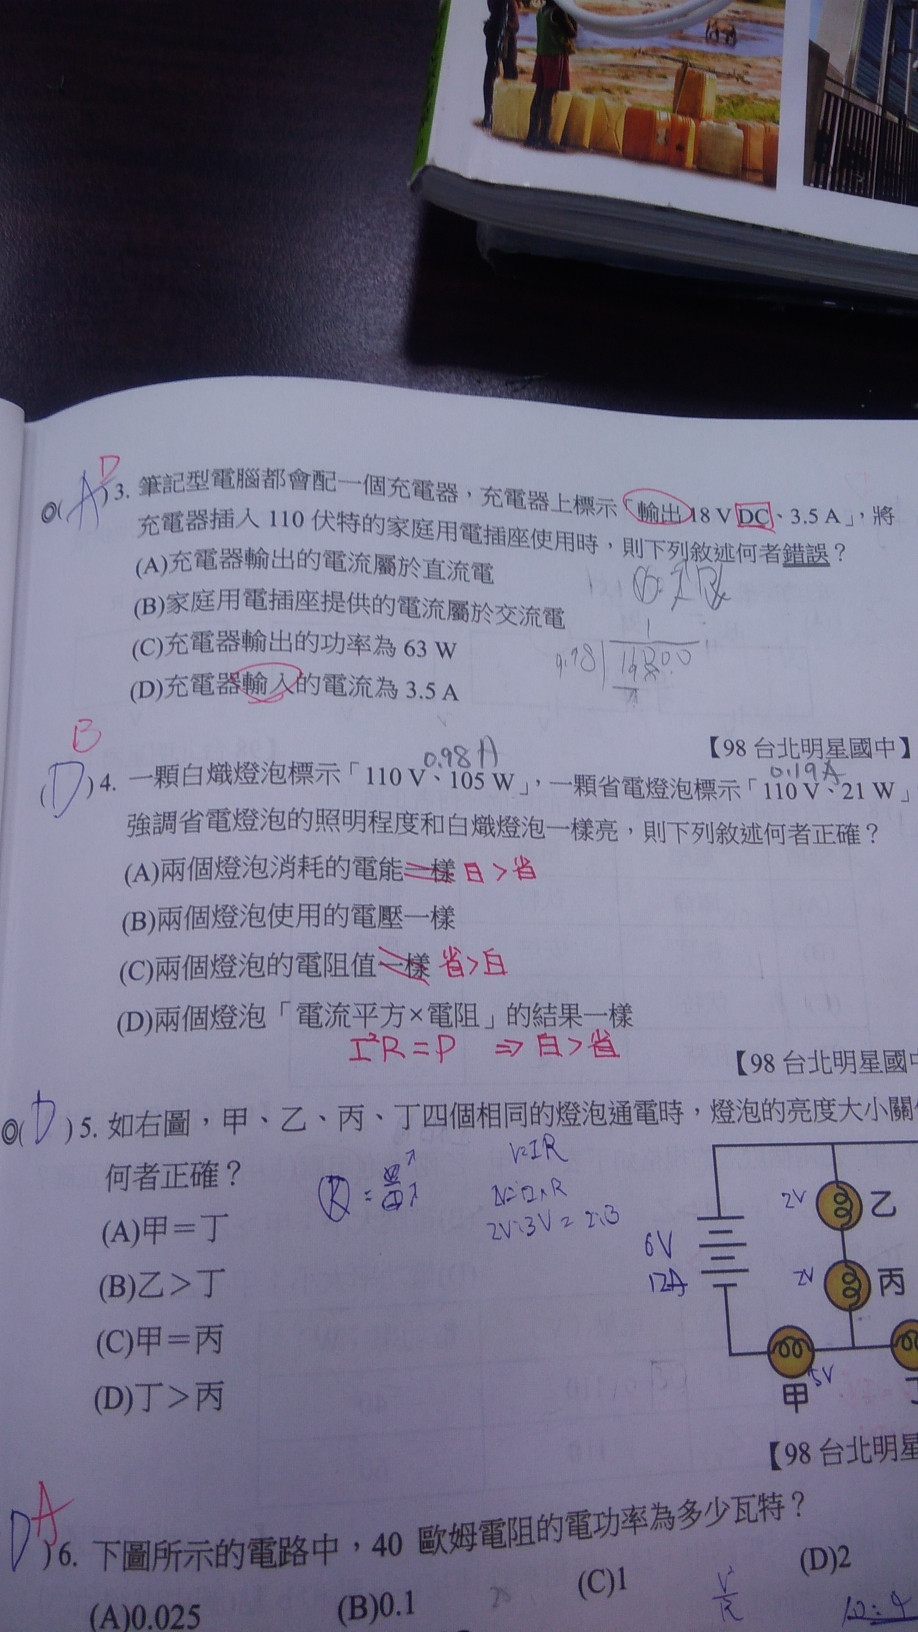 D
◎( A )3. 筆記型電腦都會配一個充電器，充電器上標示「輸出18 V DC、3.5 A」，將
充電器插入 110 伏特的家庭用電插座使用時，則下列敘述何者錯誤？
(A)充電器輸出的電流屬於直流電
(B)家庭用電插座提供的電流屬於交流電
(C)充電器輸出的功率為 63 W
(D)充電器輸入的電流為 3.5 A
【98 台北明星國中】
B
0.98A
0.19A
( D )4. 一顆白熾燈泡標示「110 V、105 W」，一顆省電燈泡標示「110 V、21 W」
強調省電燈泡的照明程度和白熾燈泡一樣亮，則下列敘述何者正確？
(A)兩個燈泡消耗的電能一樣 白>省
(B)兩個燈泡使用的電壓一樣
(C)兩個燈泡的電阻值一樣 省>白
(D)兩個燈泡「電流平方×電阻」的結果一樣
I²R=P ⇒ 白>省
【98 台北明星國
◎( D )5. 如右圖，甲、乙、丙、丁四個相同的燈泡通電時，燈泡的亮度大小關
何者正確？
V=IR
(A)甲＝丁
(B)乙＞丁
(C)甲＝丙
(D)丁＞丙
2V 乙
6V
12A
2V 丙
甲
【98 台北明星
A
D )6. 下圖所示的電路中，40 歐姆電阻的電功率為多少瓦特？
(A)0.025 (B)0.1 (C)1 (D)2
V²
R